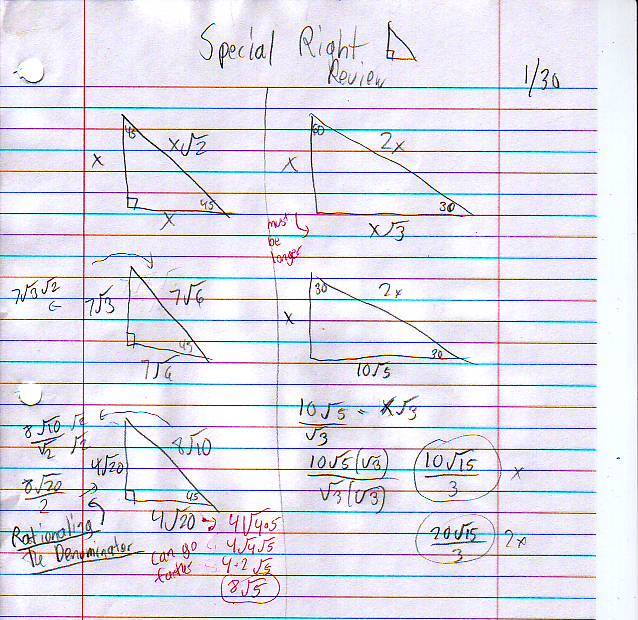 Special Right
Review
1/30
45
x√2
x
45
x
60
2x
x
30
x√3
must
be
longer
7√3 √2
7√3
7√6
45
7√6
30
2x
x
30
10√5
8√10 √2
√2 √2
8√20
2
4√20
8√10
45
4√20 → 4√4·5
4√4√5
4·2√5
8√5
can go
Rationaling
The Denominator
10√5 = x√3
√3
10√5(√3)
√3(√3)
10√15
3
x
20√15
3
2x